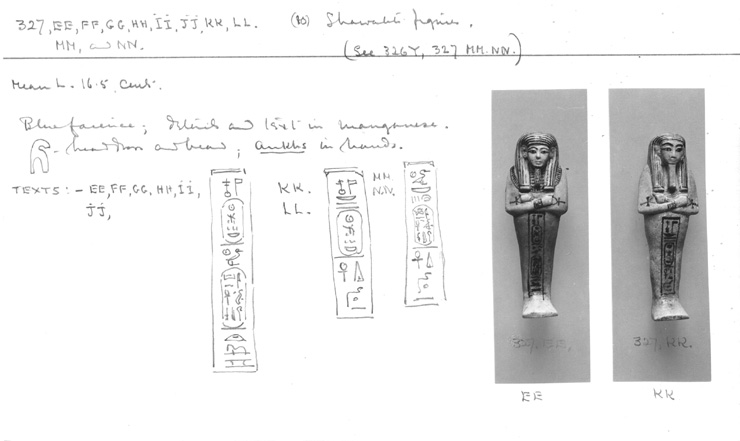 327, EE, FF, GG, HH, ii, jj, KK, LL.
MM, and NN.
(10) Shawabti figures.
(See 326Y, 327 MM. NN.)
Mean L. 16.5 cent.
Blue faience; details and text in manganese.
- headdress and beard; ankhs in hands.
TEXTS: - EE, FF, GG, HH, ii,
jj,
KK.
LL.
MM.
NN.
327,
327, KK.
EE
KK